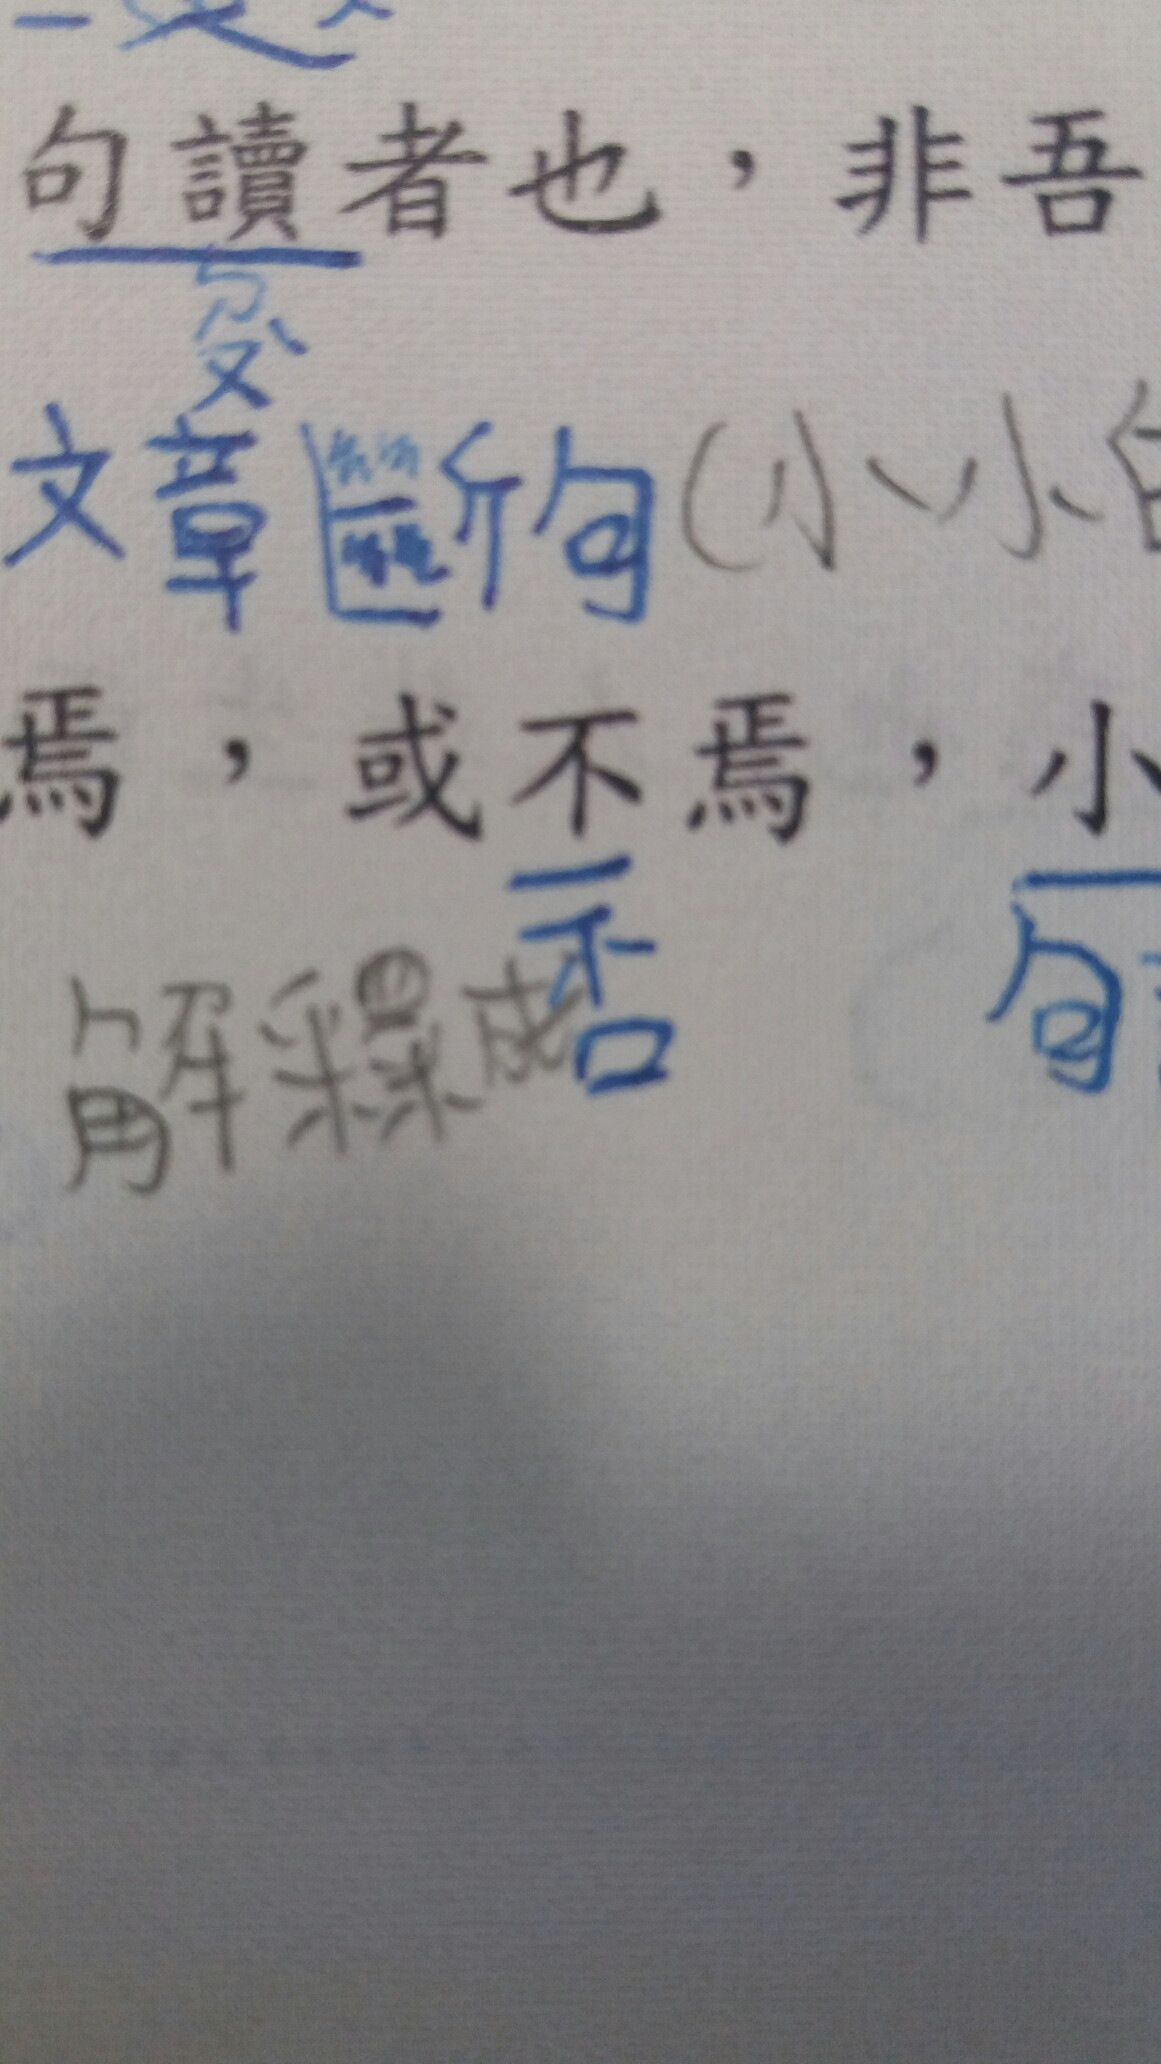 句讀者也，非吾
ㄉㄡˋ
文章斷句(小小
焉，或不焉，小
否
解釋成
句